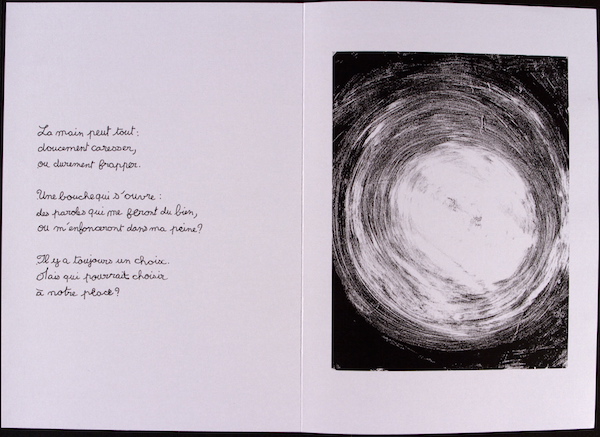 La main peut tout :
doucement caresser,
ou durement frapper.
Une bouche qui s'ouvre :
des paroles qui me feront du bien,
ou m'enfonceront dans ma peine ?
Il y a toujours un choix.
Mais qui pourrait choisir
à notre place ?